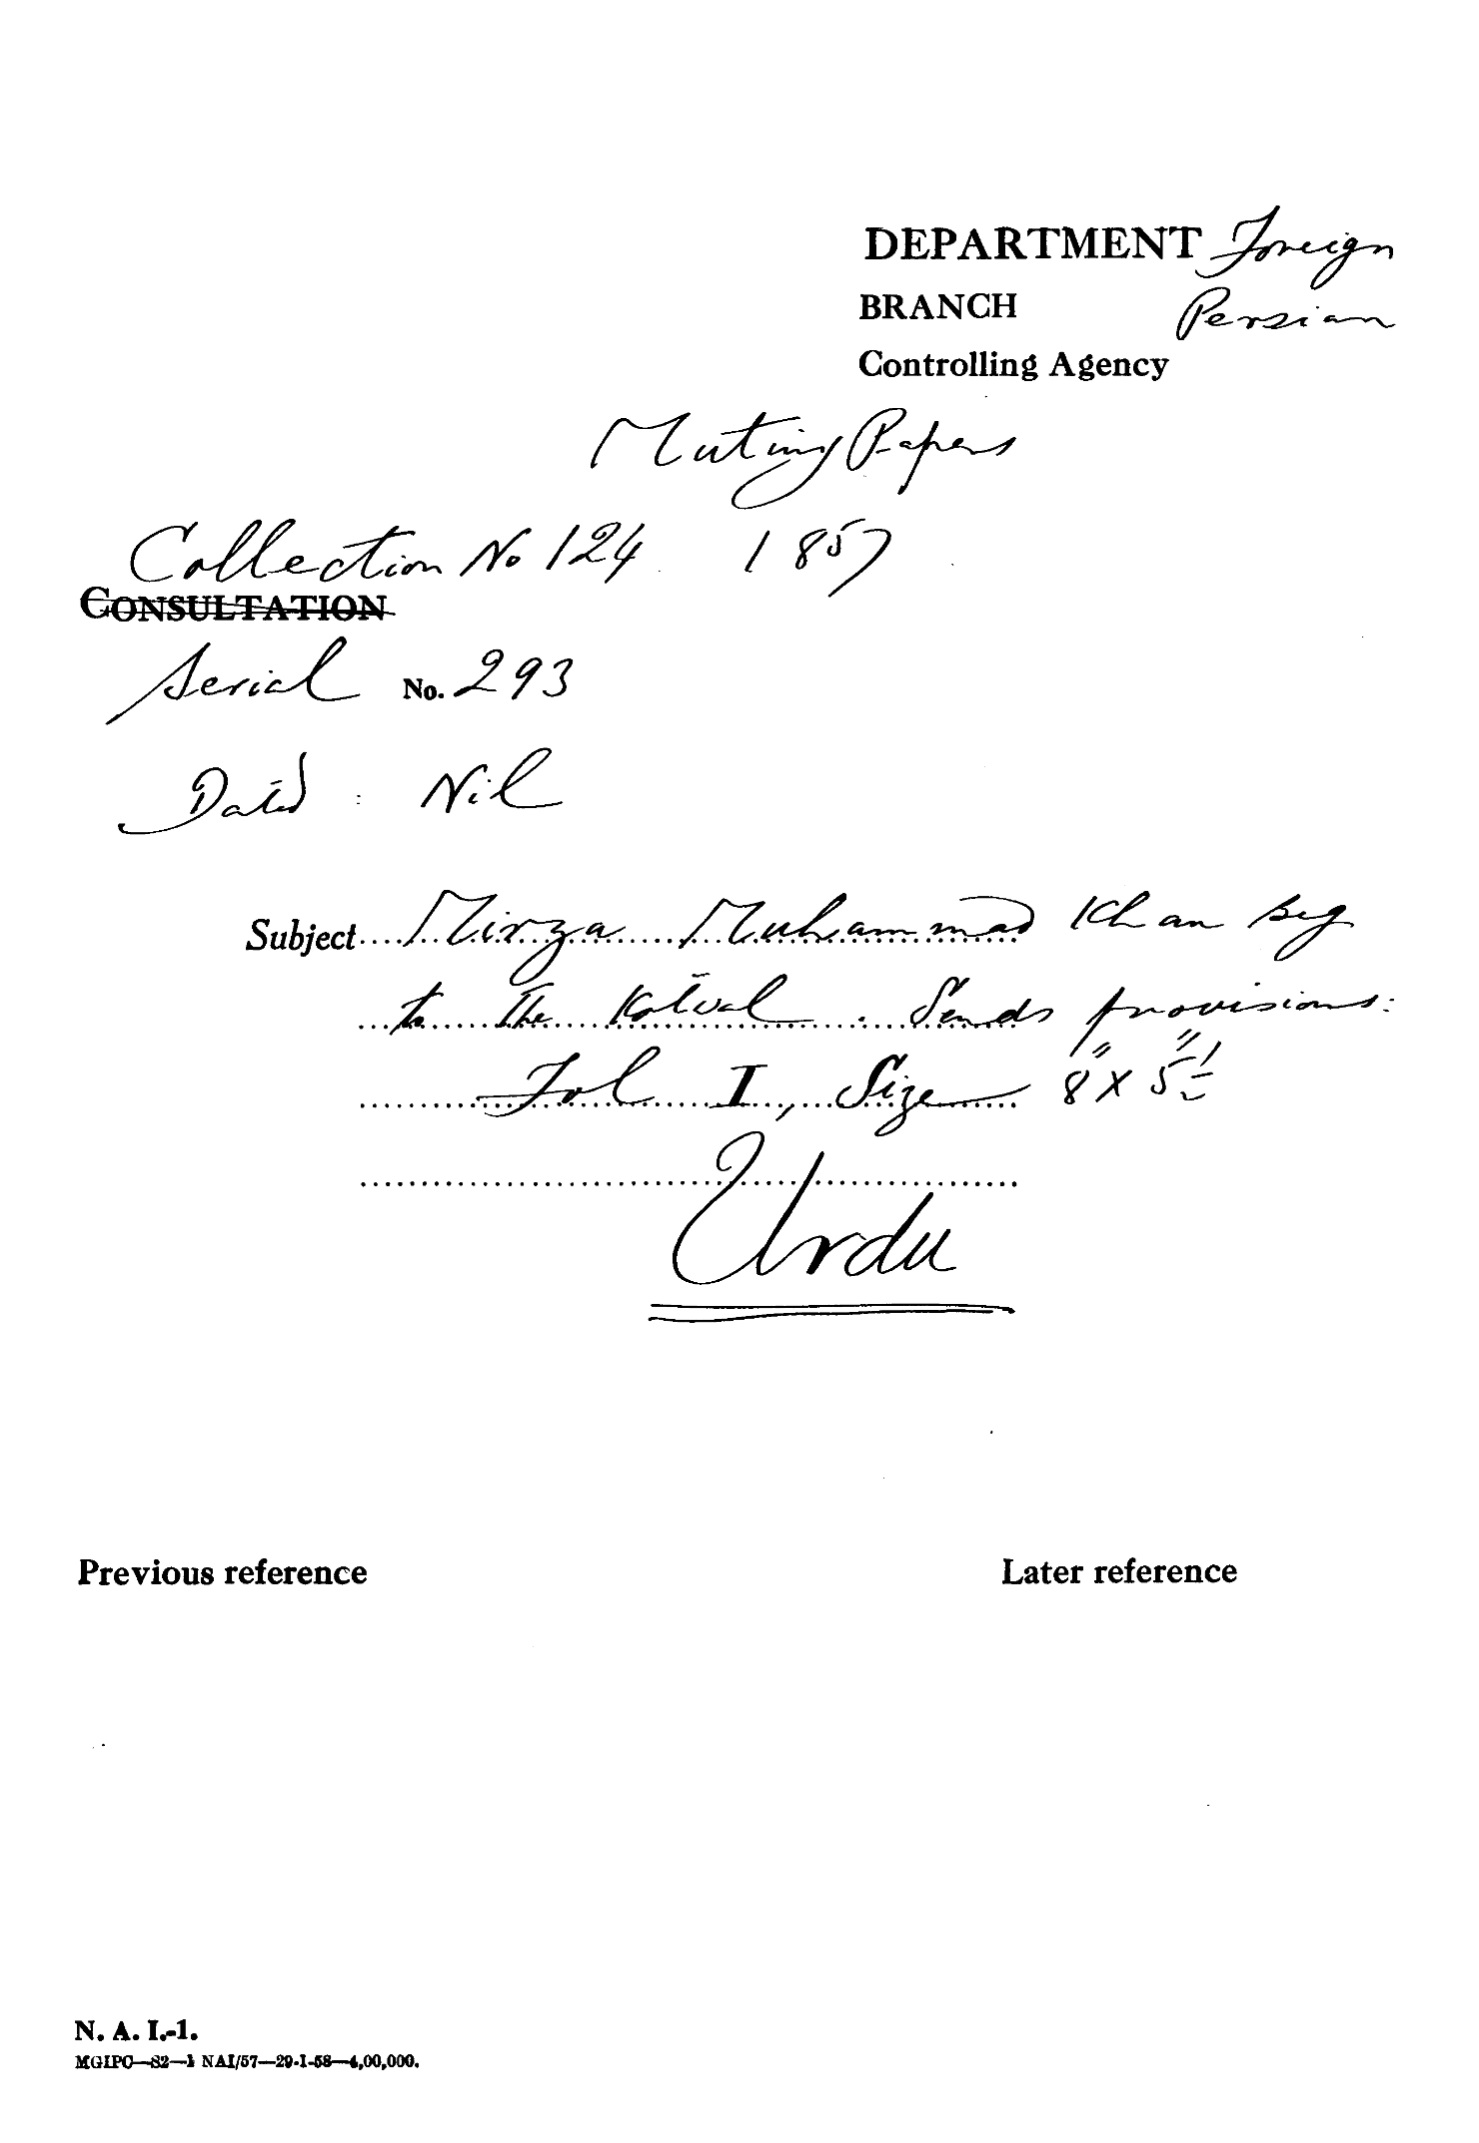 DEPARTMENT Foreign
BRANCH Persian
Controlling Agency
Mutiny Papers
Collection No 124 1857
CONSULTATION
Serial No. 293
Dated : Nil
Subject Mirza Muhammad Khan Beg
to the Kotwal. Sends provisions.
Fol I, Size 8" X 5 1/2"
Urdu
Previous reference Later reference
N. A. I.-1.
MGIPC—S2—1 NAI/57—29-1-58—4,00,000.